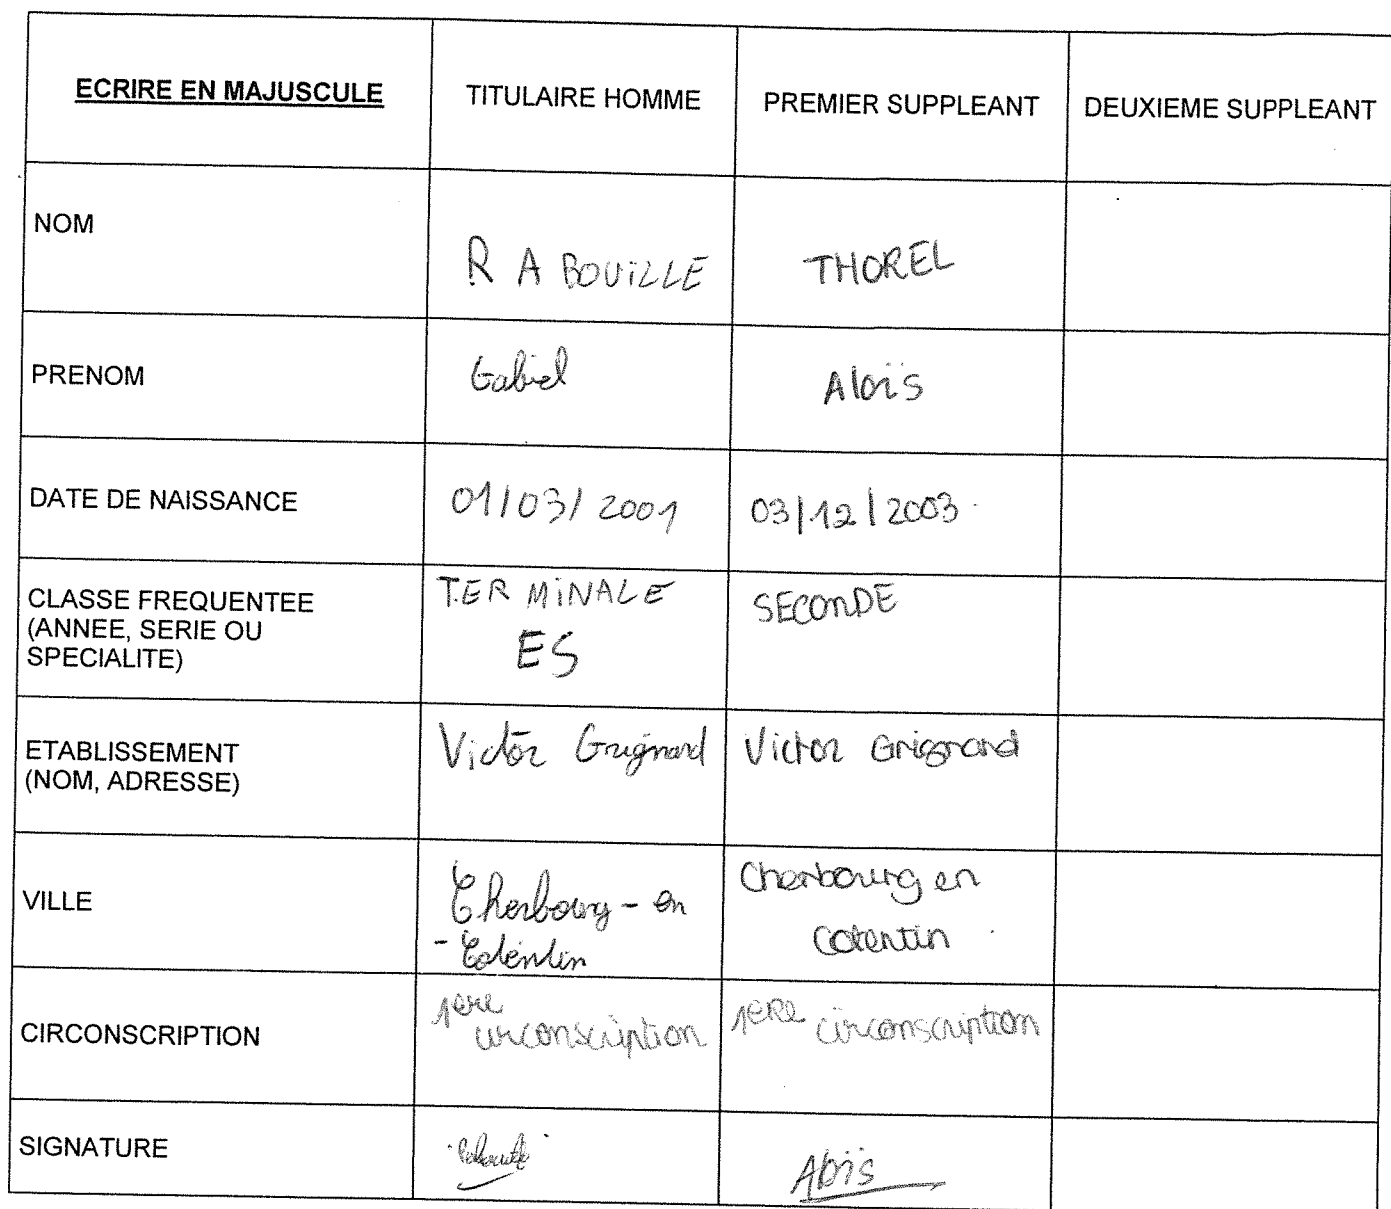 ECRIRE EN MAJUSCULE TITULAIRE HOMME PREMIER SUPPLEANT DEUXIEME SUPPLEANT
NOM
R A BOUILLE THOREL
PRENOM Gabriel Aloïs
DATE DE NAISSANCE 01/03/2001 03/12/2003
CLASSE FREQUENTEE
(ANNEE, SERIE OU
SPECIALITE)
TERMINALE
ES
SECONDE
ETABLISSEMENT
(NOM, ADRESSE)
Victor Grignard Victor Grignard
VILLE
Cherbourg-en
-Cotentin
Cherbourg en
Cotentin
CIRCONSCRIPTION 1ere circonscription 1ERE circonscription
SIGNATURE Aloïs